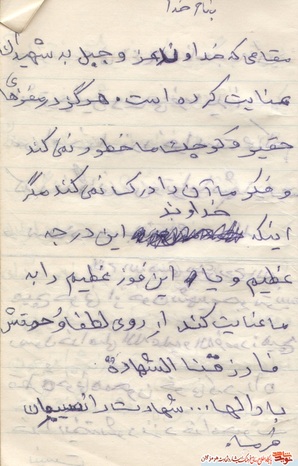 بنام خدا
مقامی که خداوند عز و جل به شهیدان
عنایت کرده است، هرگز در مغزهای
حقیر و کوچک ما خطور نمی کند
و فکر ما آن را درک نمی کند مگر
خداوند
اینکه این درجه
عظیم و یا این فوز عظیم را به
ما عنایت کند از روی لطف و رحمتش
فارزقنا الشهادة
بارالها... شهادت را نصیبمان
فرما